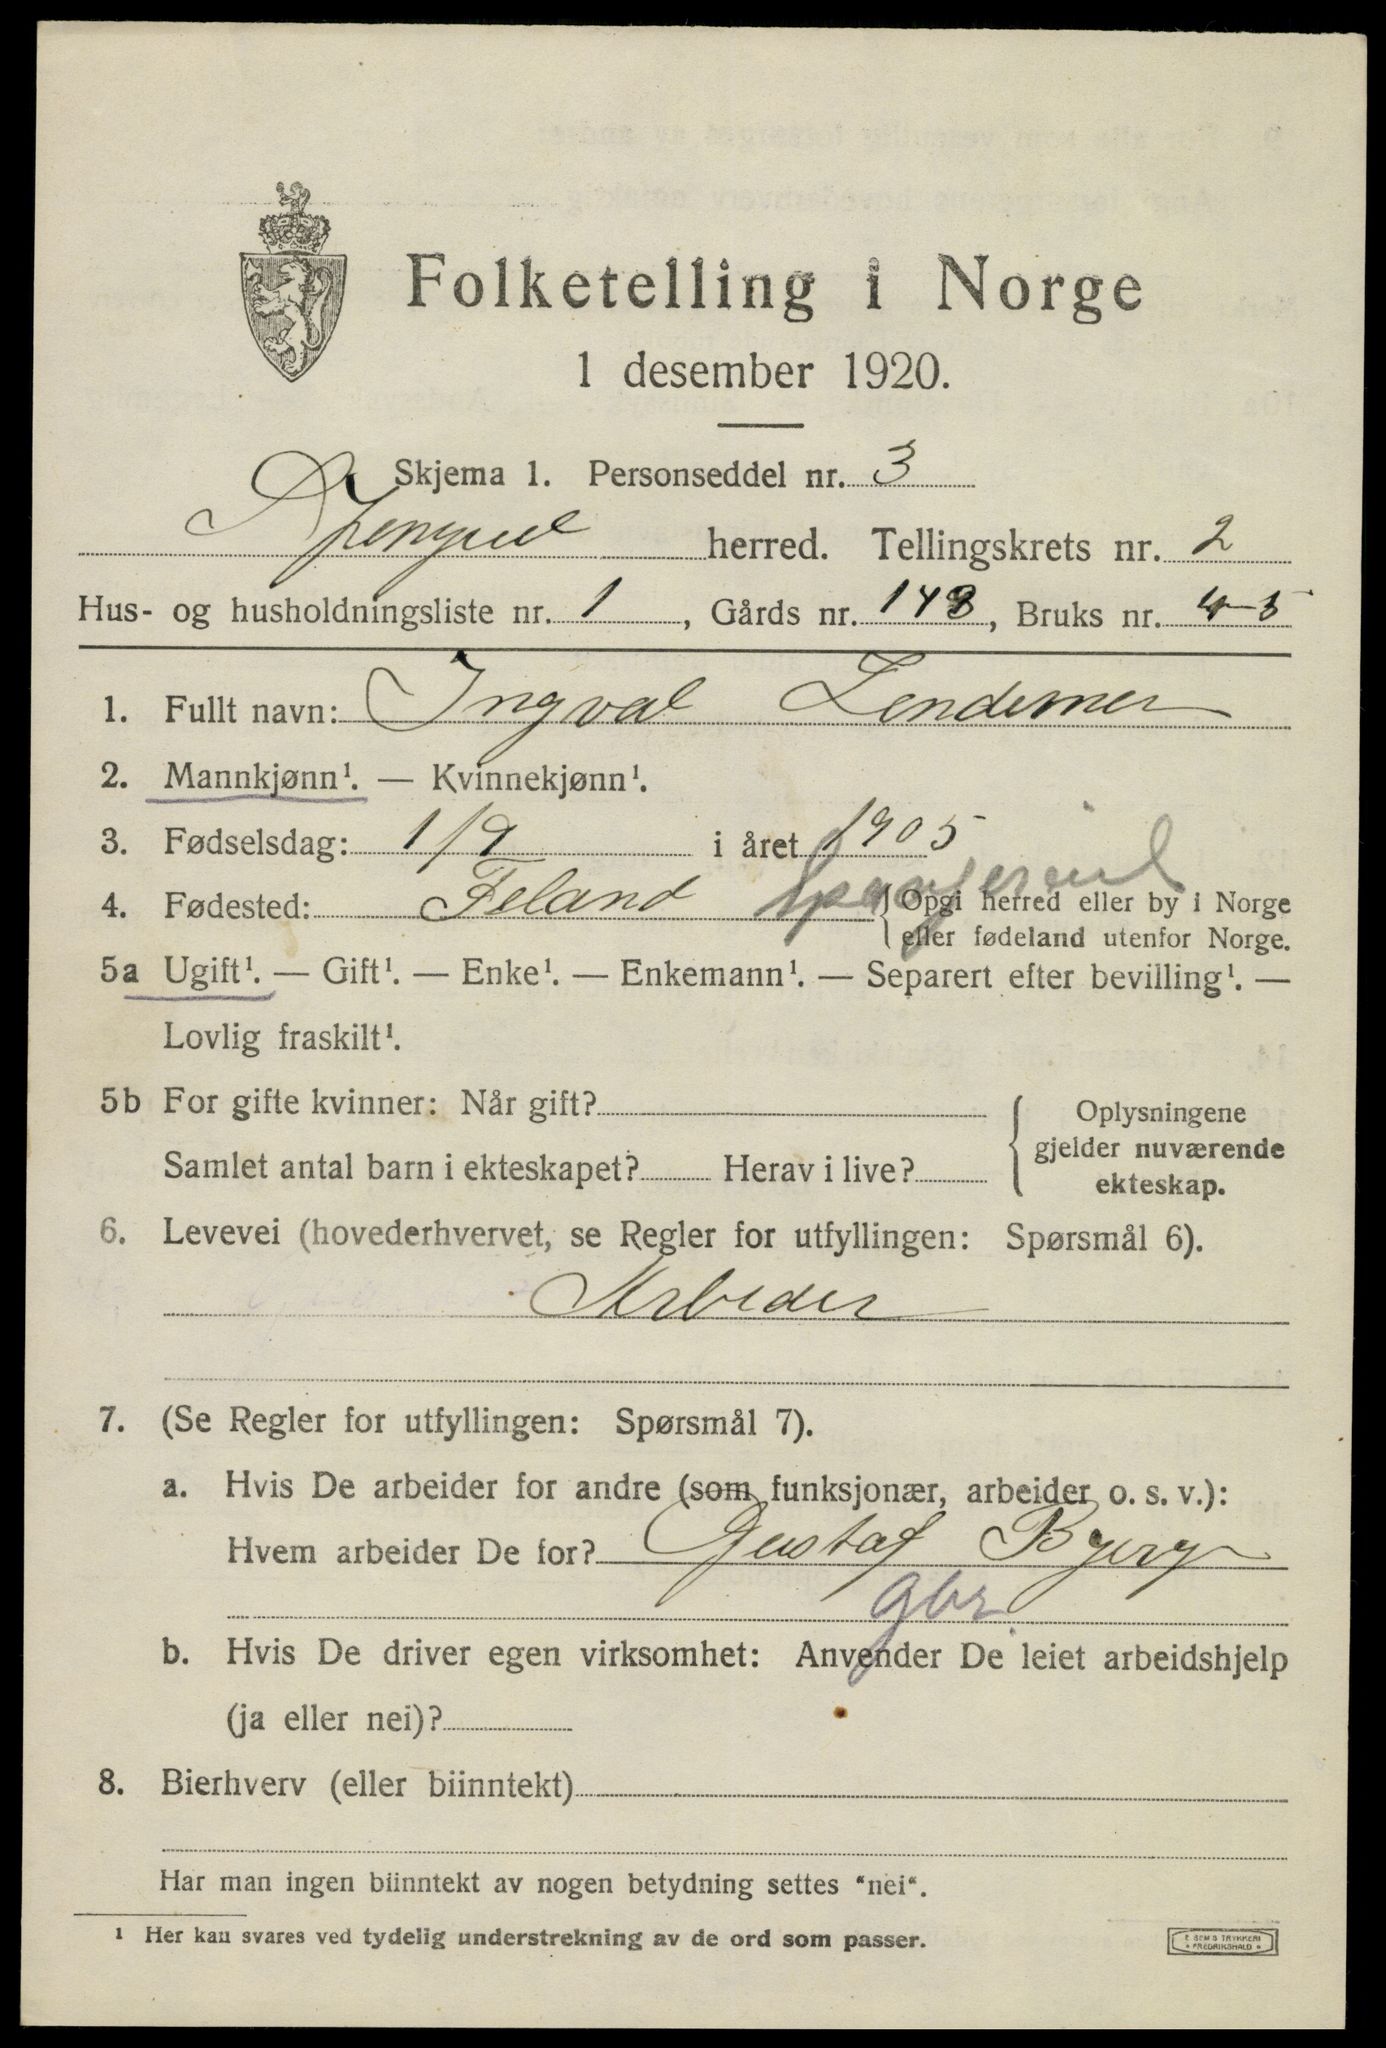 Folketelling i Norge
1 desember 1920.
Skjema 1. Personseddel nr. 3
herred. Tellingskrets nr. 2
Hus- og husholdningsliste nr. 1, Gårds nr. 148, Bruks nr. 4-5
1. Fullt navn: Ingval Lendemer
2. Mannkjønn¹. — Kvinnekjønn¹.
3. Fødselsdag: 1/9 i året 1905
4. Fødested: Feland Spangereid { Opgi herred eller by i Norge
eller fødeland utenfor Norge.
5a Ugift¹. — Gift¹. — Enke¹. — Enkemann¹. — Separert efter bevilling¹. —
Lovlig fraskilt¹.
5b For gifte kvinner: Når gift?
Samlet antal barn i ekteskapet? Herav i live?
{ Oplysningene
gjelder nuværende
ekteskap.
6. Levevei (hovederhvervet, se Regler for utfyllingen: Spørsmål 6).
Arbeder
7. (Se Regler for utfyllingen: Spørsmål 7).
a. Hvis De arbeider for andre (som funksjonær, arbeider o. s. v.):
Hvem arbeider De for? Gustaf Bjerge
gbr.
b. Hvis De driver egen virksomhet: Anvender De leiet arbeidshjelp
(ja eller nei)?
8. Bierhverv (eller biinntekt)
Har man ingen biinntekt av nogen betydning settes "nei".
¹ Her kan svares ved tydelig understrekning av de ord som passer.
E. SEMS TRYKKERI
FREDRIKSHALD